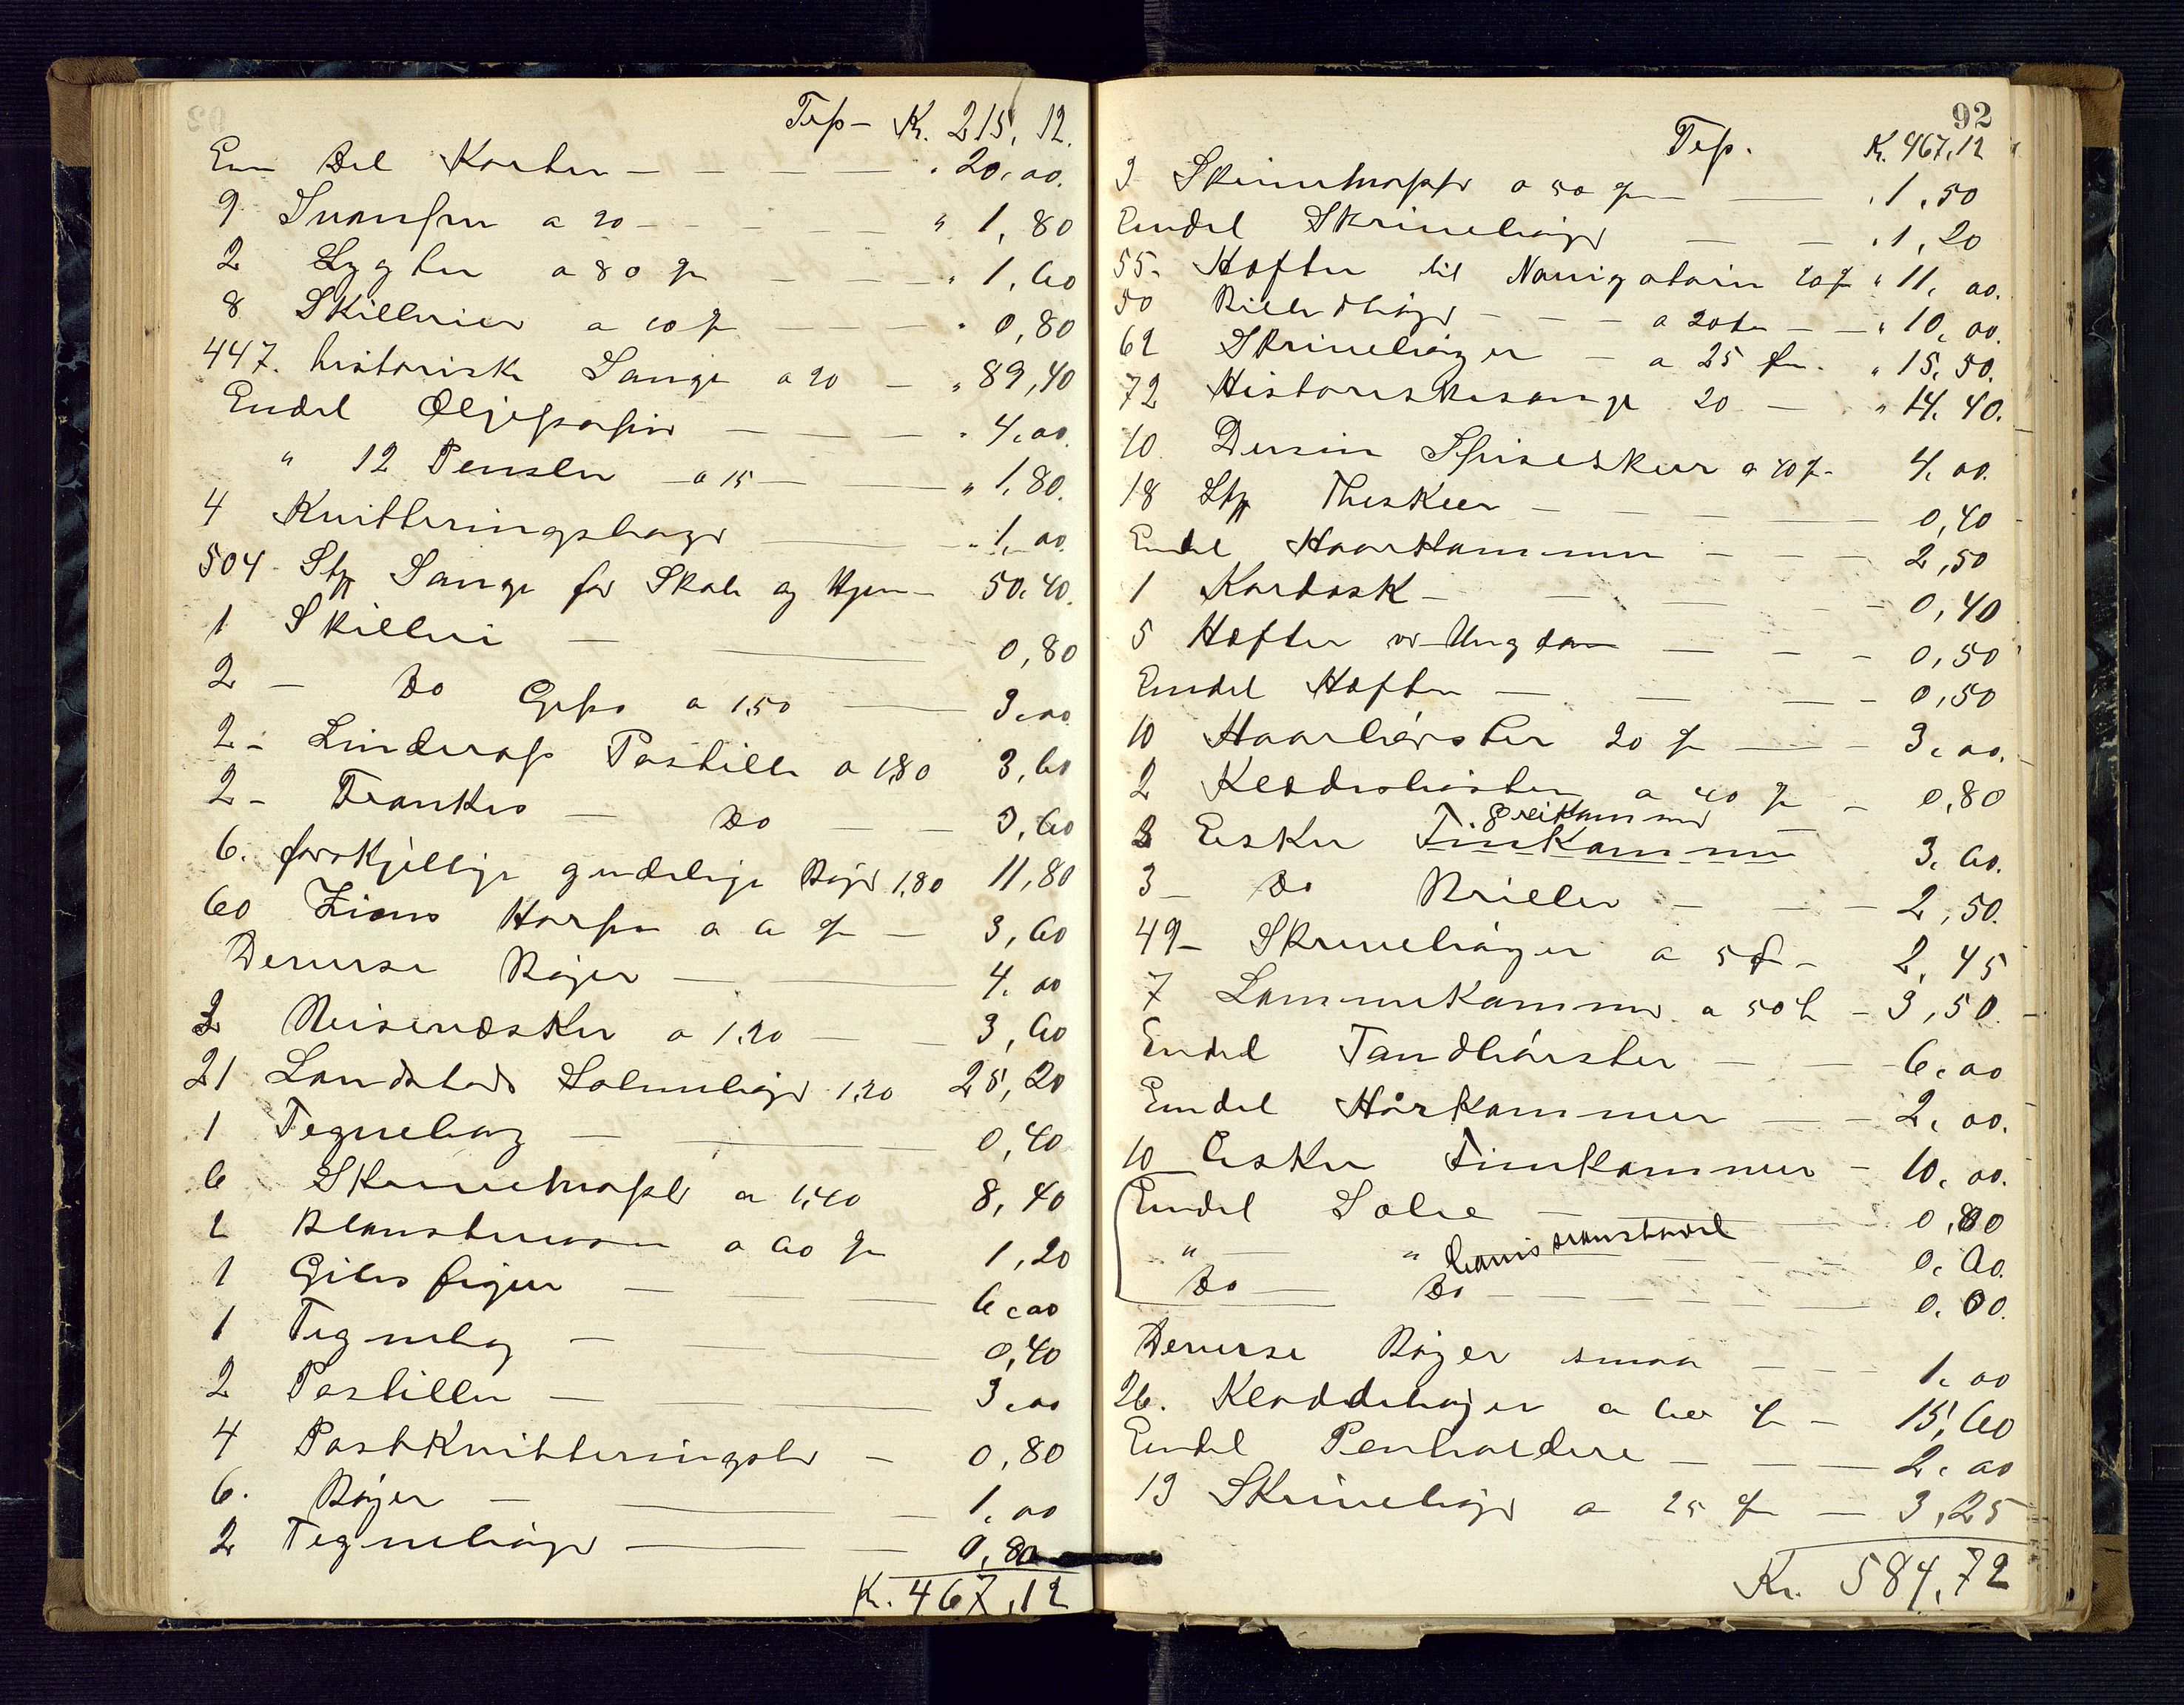 Tsp - K. 215,12.
En Del Karter - 20,00.
9 Svampen a 20 - " 1,80
2 Lygter a 80 ør - 1,60
8 Skillerier a 10 ør - 0,80
447. historiske Sange a 20 - " 89,40
Endel Oljefarfver - 4,00.
" 12 Pensler a 15 - " 1,80.
4 Kvitteringsbøger - 1,00.
504 - Stk Sange for Skole og Hjem - 50,40.
1 Skilleri - 0,80
2 - Do Gips a 1,50 - 3,00
2 - Linderofs Postille a 1,80 3,60
2 - Frankes - Do - 3,60
6. forskjellige gudelige Bøger 1,80 11,80
60 Zions Harpe a 6 ør - 3,60
Deverse Bøger - 4,00
3 Reisevæsker a 1,20 - 3,60
21 Landstads Salmebøger 1,20 25,20
1 Tegnebog - 0,40
6 Skrivemapper a 1,40 8,40
2 a 60 ør 1,20
1 Gibs figur - 6,00
1 Tegnebog - 0,40
2 Postiller - 3,00
4 Postkvitteringsb - 0,80
6. Bøger - 1,00
2 Tegnebøger - 0,80
K. 467,12
92
Tsp. K. 467,12
3 Skrivemapper a 50 ør - 1,50
Endel Skrivebøger - 1,20
55 - Hæfter til Navigatørin 20 ø " 11,00.
50 Billedbøger - a 20 ør - " 10,00.
62 Skrivebøger - a 25 ør. " 15,50.
72 Historiskesange 20 - " 14,40.
10 Dusin Spiseskeer a 40 ø - 4,00.
18 Stk Theskeer - 0,40
Endel Haarkammer - 2,50
1 Kardask - 0,40
5 Hæfter vor Ungdom - 0,50
Endel Hæfter - 0,50
10 Haarbørster 20 ør - 3,00.
2 Klædesbørster a 40 ør - 0,80
Greikammer
3 Esker Finkammer 3,60.
3 - Do Briller - 2,50.
49 - Skrivebøger a 5 ø - 2,45
7 Lommekammer a 50 ø - 3,50.
Endel Tandbørster - 6,00
Endel Hårkammer - 2,00.
10 Esker Finkammer - 10,00.
Endel Salve - 0,80
" " - 0,60.
Do - Do - 0,00.
Deverse Bøger smaa - 1,00
26. Kladdebøger a 60 ør - 15,60
Endel Penholdere - 2,00
13 Skrivebøger a 25 ør - 3,25
Kr. 584,72